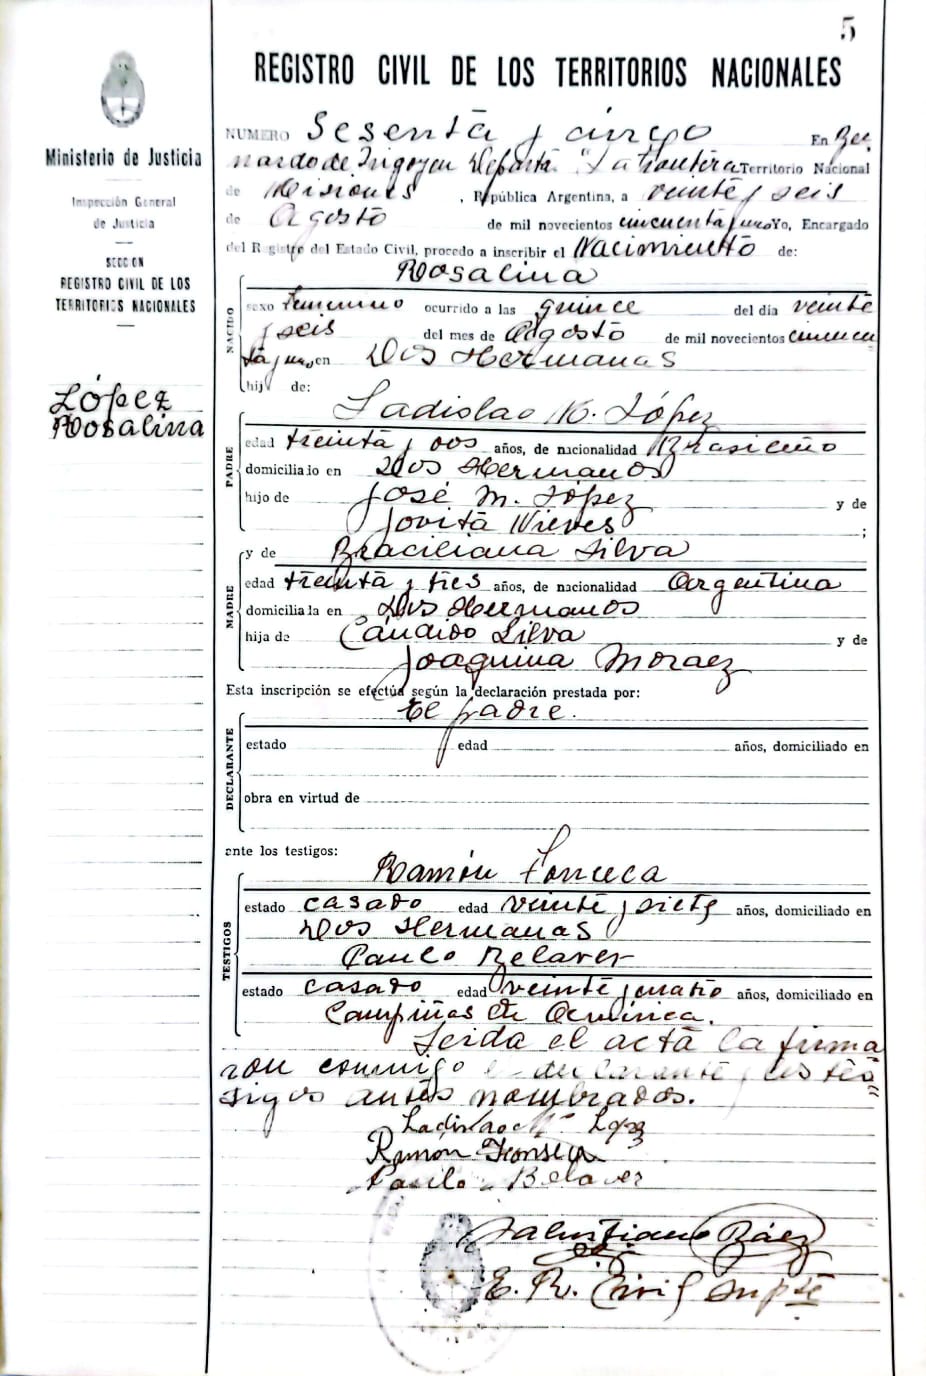 5
REGISTRO CIVIL DE LOS TERRITORIOS NACIONALES
Ministerio de Justicia
Inspección General
de Justicia
SECCION
REGISTRO CIVIL DE LOS
TERRITORIOS NACIONALES
López
Rosalina
NUMERO Sesenta y cinco En Ber
nardo de Irigoyen Departa. "La Frontera Territorio Nacional
de Misiones, República Argentina, a veinte y seis
de Agosto de mil novecientos cincuenta y uno Yo, Encargado
del Registro del Estado Civil, procedo a inscribir el Nacimiento de:
Rosalina
NACIDO
sexo femenino ocurrido a las quince del día veinte
y seis del mes de Agosto de mil novecientos cincuen
ta y uno, en Dos Hermanas
hij de:
Ladislao M. López
PADRE
edad treinta y dos años, de nacionalidad Brasileño
domiciliado en Dos Hermanas
hijo de José M. López y de
Jovita Nieves ;
y de Braciliana Silva
MADRE
edad treinta y tres años, de nacionalidad Argentina
domiciliada en Dos Hermanas
hija de Cándido Silva y de
Joaquina Moraez
Esta inscripción se efectúa según la declaración prestada por:
El padre.
DECLARANTE
estado edad años, domiciliado en
obra en virtud de
ante los testigos:
Ramón Fonseca
TESTIGOS
estado casado edad veinte y siete años, domiciliado en
Dos Hermanas
Paulo Belaver
estado casado edad veinte y cuatro años, domiciliado en
Campiñas de América.
Leida el acta la firma
ron conmigo el declarante y los tes
tigos antes nombrados.
Ladislao M. Lopez
Ramón Fonseca
Paulo Belaver
Salustiano Báez
E. R. Civil Supte